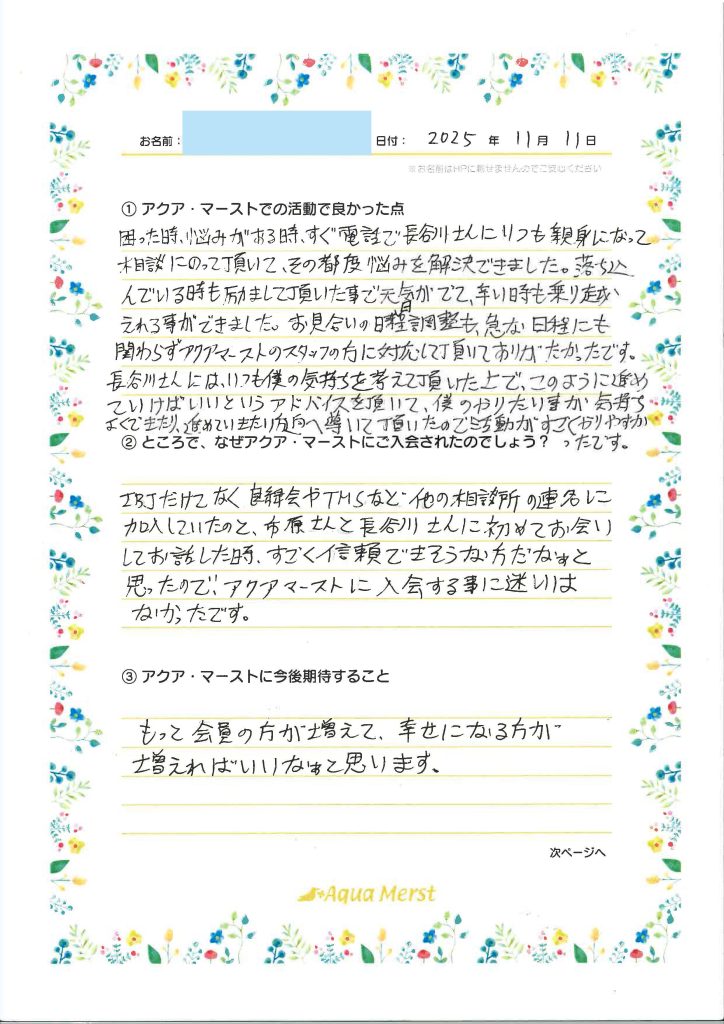 お名前：
日付： 2025 年 11月 11日
※お名前はHPに載せませんのでご安心ください
① アクア・マーストでの活動で良かった点
困った時、悩みがある時、すぐ電話で長谷川さんにいつも親身になって
相談にのって頂いて、その都度悩みを解決できました。落ち込
んでいる時も励まして頂いた事で元気がでて、辛い時も乗り越
えれる事ができました。お見合いの日程調整も、急な日程にも
関わらずアクアマーストのスタッフの方に対応して頂いてありがたかったです。
長谷川さんには、いつも僕の気持ちを考えて頂いた上で、このように進め
ていけばいいというアドバイスを頂いて、僕のやりたい事が気持ち
よくできたり、進めていきたい方向へ導いて頂いたので活動がすごくやりやすか
ったです。
② ところで、なぜアクア・マーストにご入会されたのでしょう？
IBJだけでなく良縁会やTMSなど他の相談所の連盟に
加入していたのと、市原さんと長谷川さんに初めてお会い
してお話した時、すごく信頼できそうな方だなぁと
思ったので、アクアマーストに入会する事に迷いは
なかったです。
③ アクア・マーストに今後期待すること
もって会員の方が増えて、幸せになる方が
増えればいいなぁと思います。
次ページへ
Aqua Merst